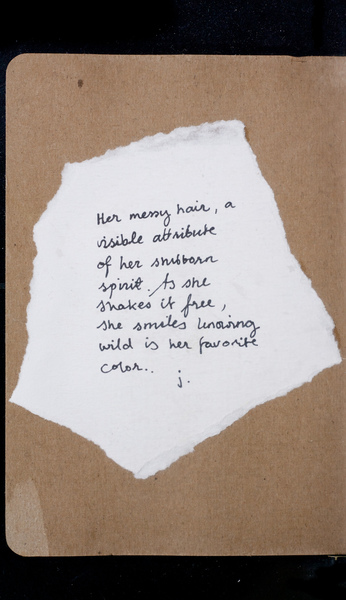 Her messy hair, a
visible attribute
of her stubborn
spirit. As she
shakes it free,
she smiles knowing
wild is her favorite
color..
j.